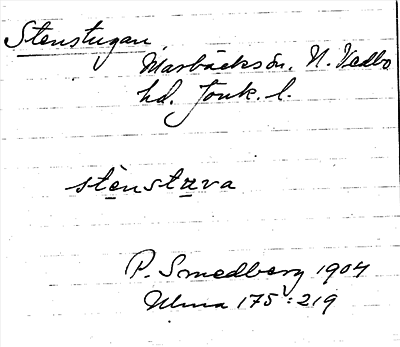 Stenstugan
Marbäcks sn. N. Vedbo
hd. Jönk. l.
stenstuva
P. Smedberg 1904
Ulma 175:219